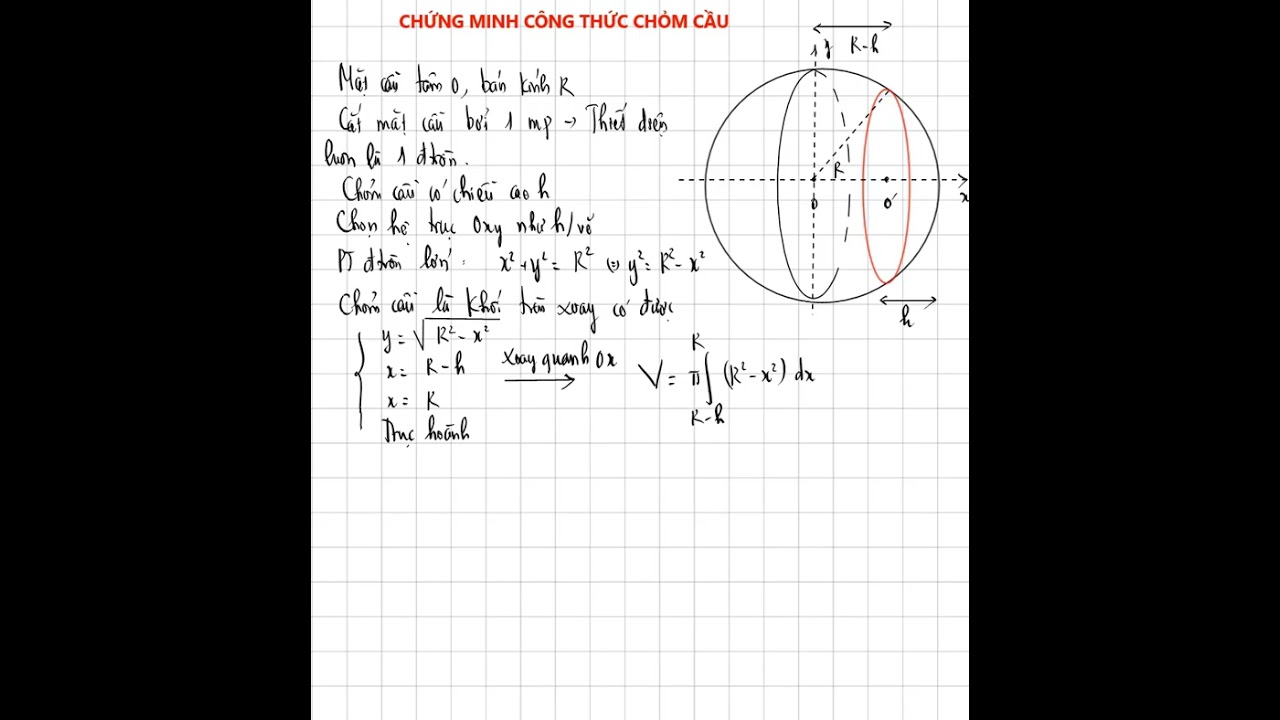 CHỨNG MINH CÔNG THỨC CHỎM CẦU
Mặt cầu tâm O, bán kính R
Cắt mặt cầu bởi 1 mp → Thiết diện
luôn là 1 đtròn.
Chỏm cầu có chiều cao h
Chọn hệ trục Oxy như h/vẽ
PT đtròn lớn: x² + y² = R² ⇔ y² = R² - x²
Chỏm cầu là khối tròn xoay có được
y = √(R² - x²)
x = R - h
x = R
Trục hoành
xoay quanh Ox
V = π ∫_{R-h}^{R} (R² - x²) dx
R-h
y
R
O
O'
x
h